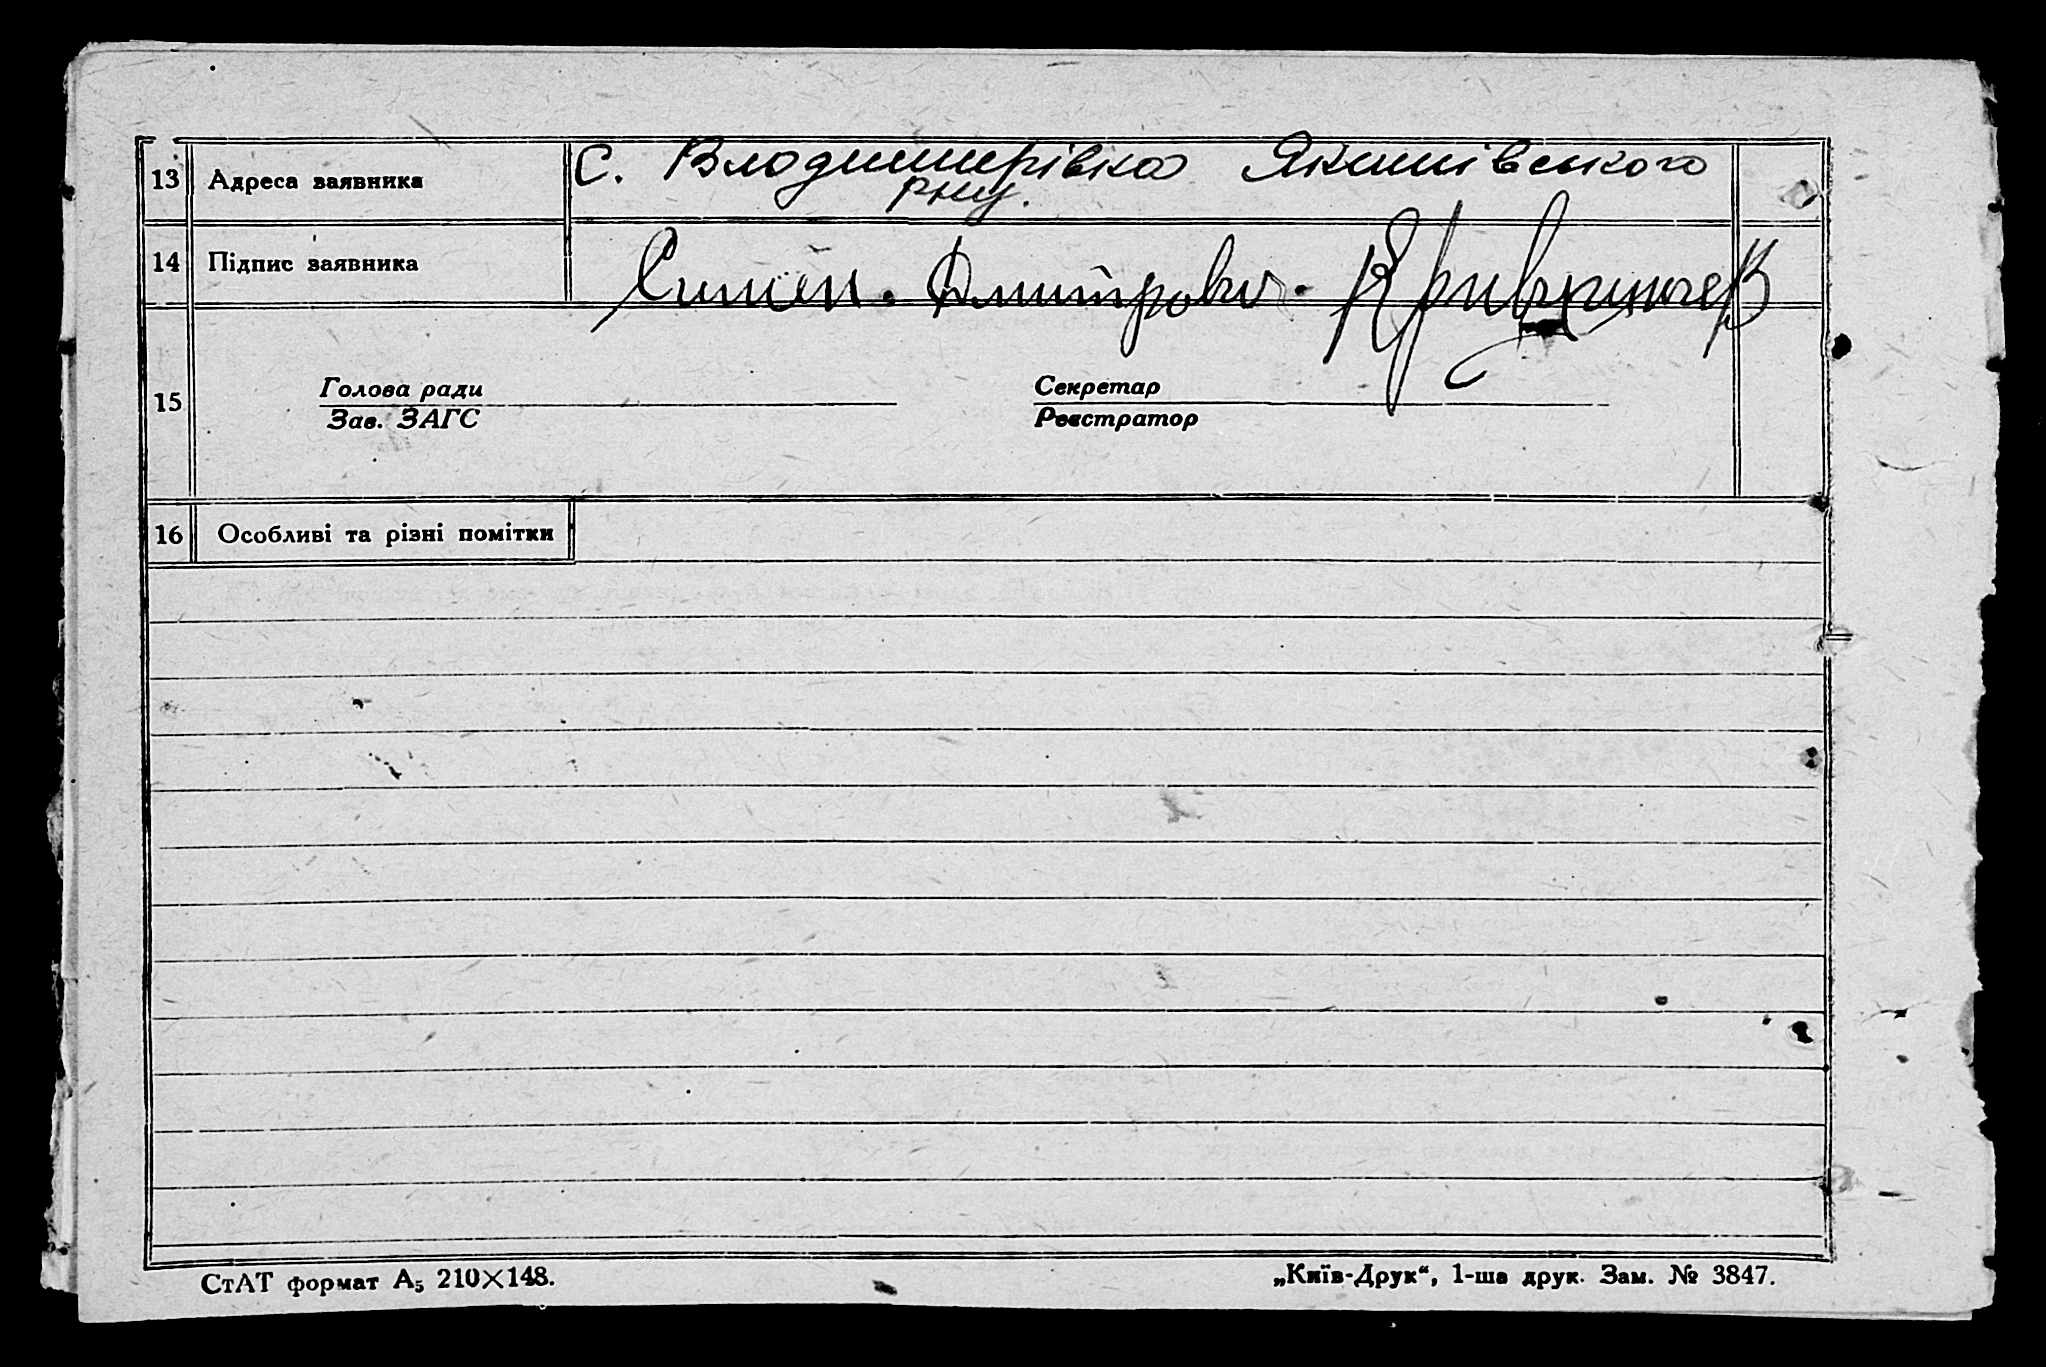 13 Адреса заявника С. Владимирівка Якимівського
рну.
14 Підпис заявника Симон. Дмитрович.
15 Голова ради Секретар
Зав. ЗАГС Реєстратор
16 Особливі та різні помітки
СтАТ формат А5 210×148. „Київ-Друк“, 1-ша друк. Зам. № 3847.